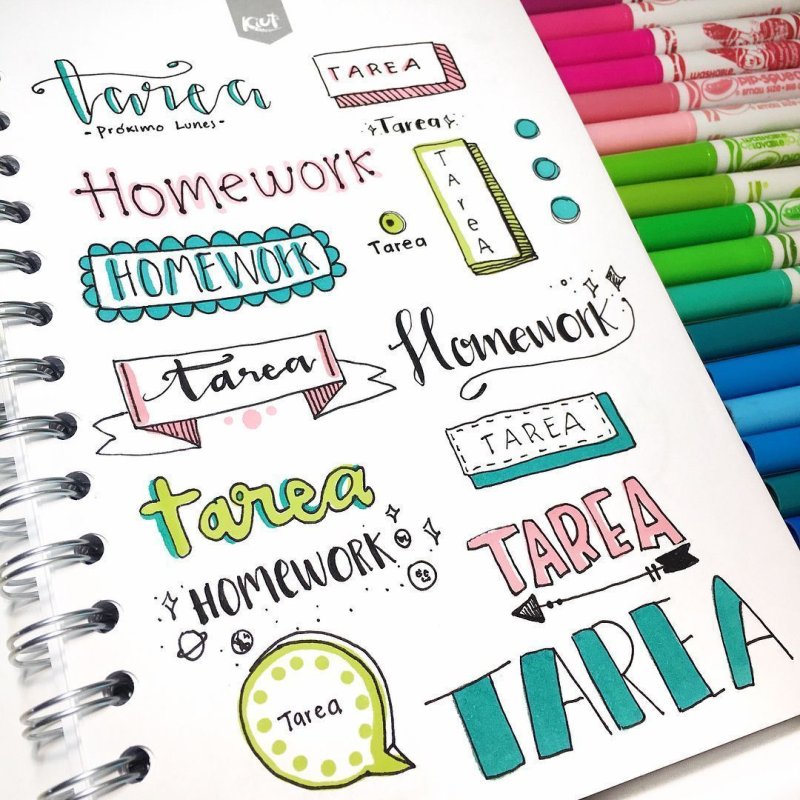 Kiut
tarea
- Próximo Lunes -
TAREA
Tarea
Homework
TareA
Tarea
HOMEWORK
tarea
Homework
TAREA
tarea
TAREA
HOMEWORK
Tarea
TAREA